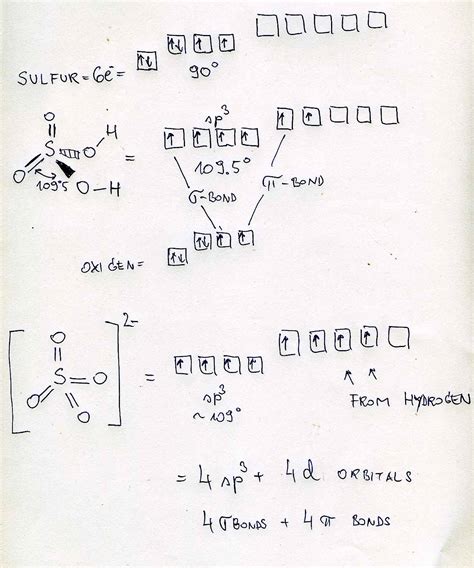 SULFUR = 6e⁻ =
90°
sp³
O
H
S
O
O
109°5
O-H
=
109.5°
σ-BOND
π-BOND
OXIGEN =
2-
O
S
O
O
O
=
sp³
~109°
FROM HYDROGEN
= 4 sp³ + 4d ORBITALS
4 σ BONDS + 4 π BONDS